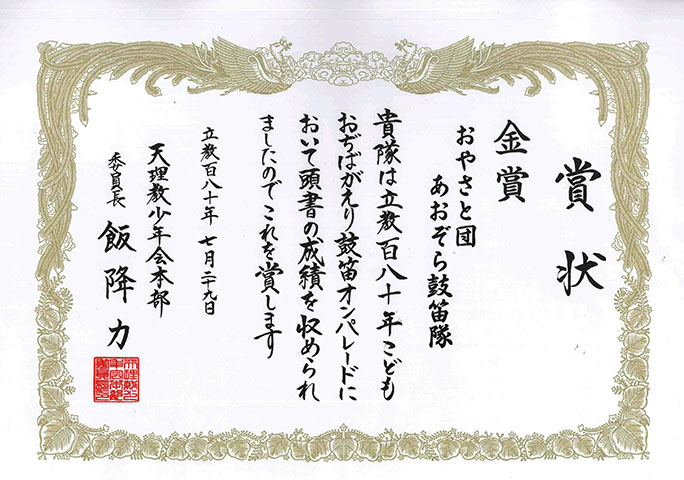 賞状
金賞
おやさと団
あおぞら鼓笛隊
貴隊は立教百八十年こども
おぢばがえり鼓笛オンパレードに
おいて頭書の成績を収められ
ましたのでこれを賞します
立教百八十年 七月二十九日
天理教少年会本部
委員長 飯降力